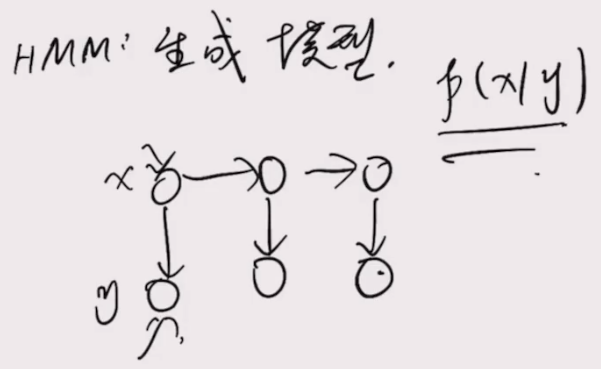 HMM: 生成模型.
p(x|y)
x
y